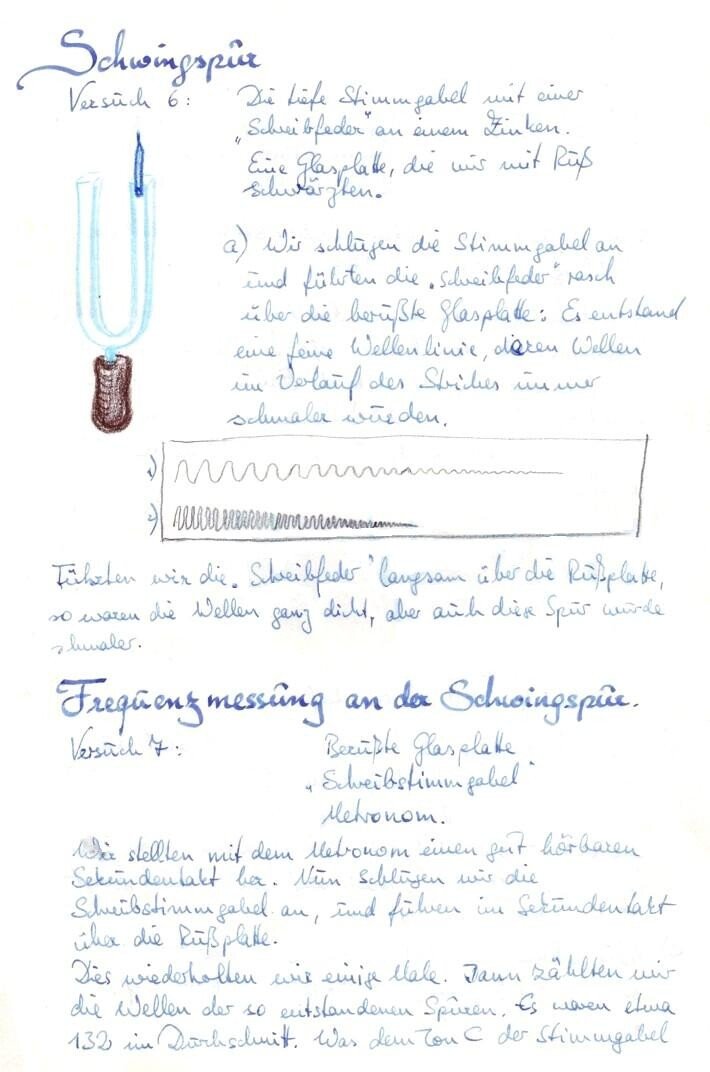 Schwingspur
Versuch 6: Die tiefe Stimmgabel mit einer
„Schreibfeder" an einem Zinken.
Eine Glasplatte, die wir mit Ruß
schwärzten.
a) Wir schlugen die Stimmgabel an
und führten die „Schreibfeder" rasch
über die berußte Glasplatte: Es entstand
eine feine Wellenlinie, deren Wellen
im Verlauf des Striches immer
schmaler wurden.
1)
2)
Führten wir die „Schreibfeder" langsam über die Rußplatte,
so waren die Wellen ganz dicht, aber auch diese Spur wurde
schmaler.
Frequenzmessung an der Schwingspur.
Versuch 7: Berußte Glasplatte
„Schreibstimmgabel"
Metronom.
Wir stellten mit dem Metronom einen gut hörbaren
Sekundentakt her. Nun schlugen wir die
Schreibstimmgabel an, und fuhren im Sekundentakt
über die Rußplatte.
Dies wiederholten wir einige Male. Dann zählten wir
die Wellen der so entstandenen Spuren. Es waren etwa
132 im Durchschnitt. Was dem Ton C der Stimmgabel